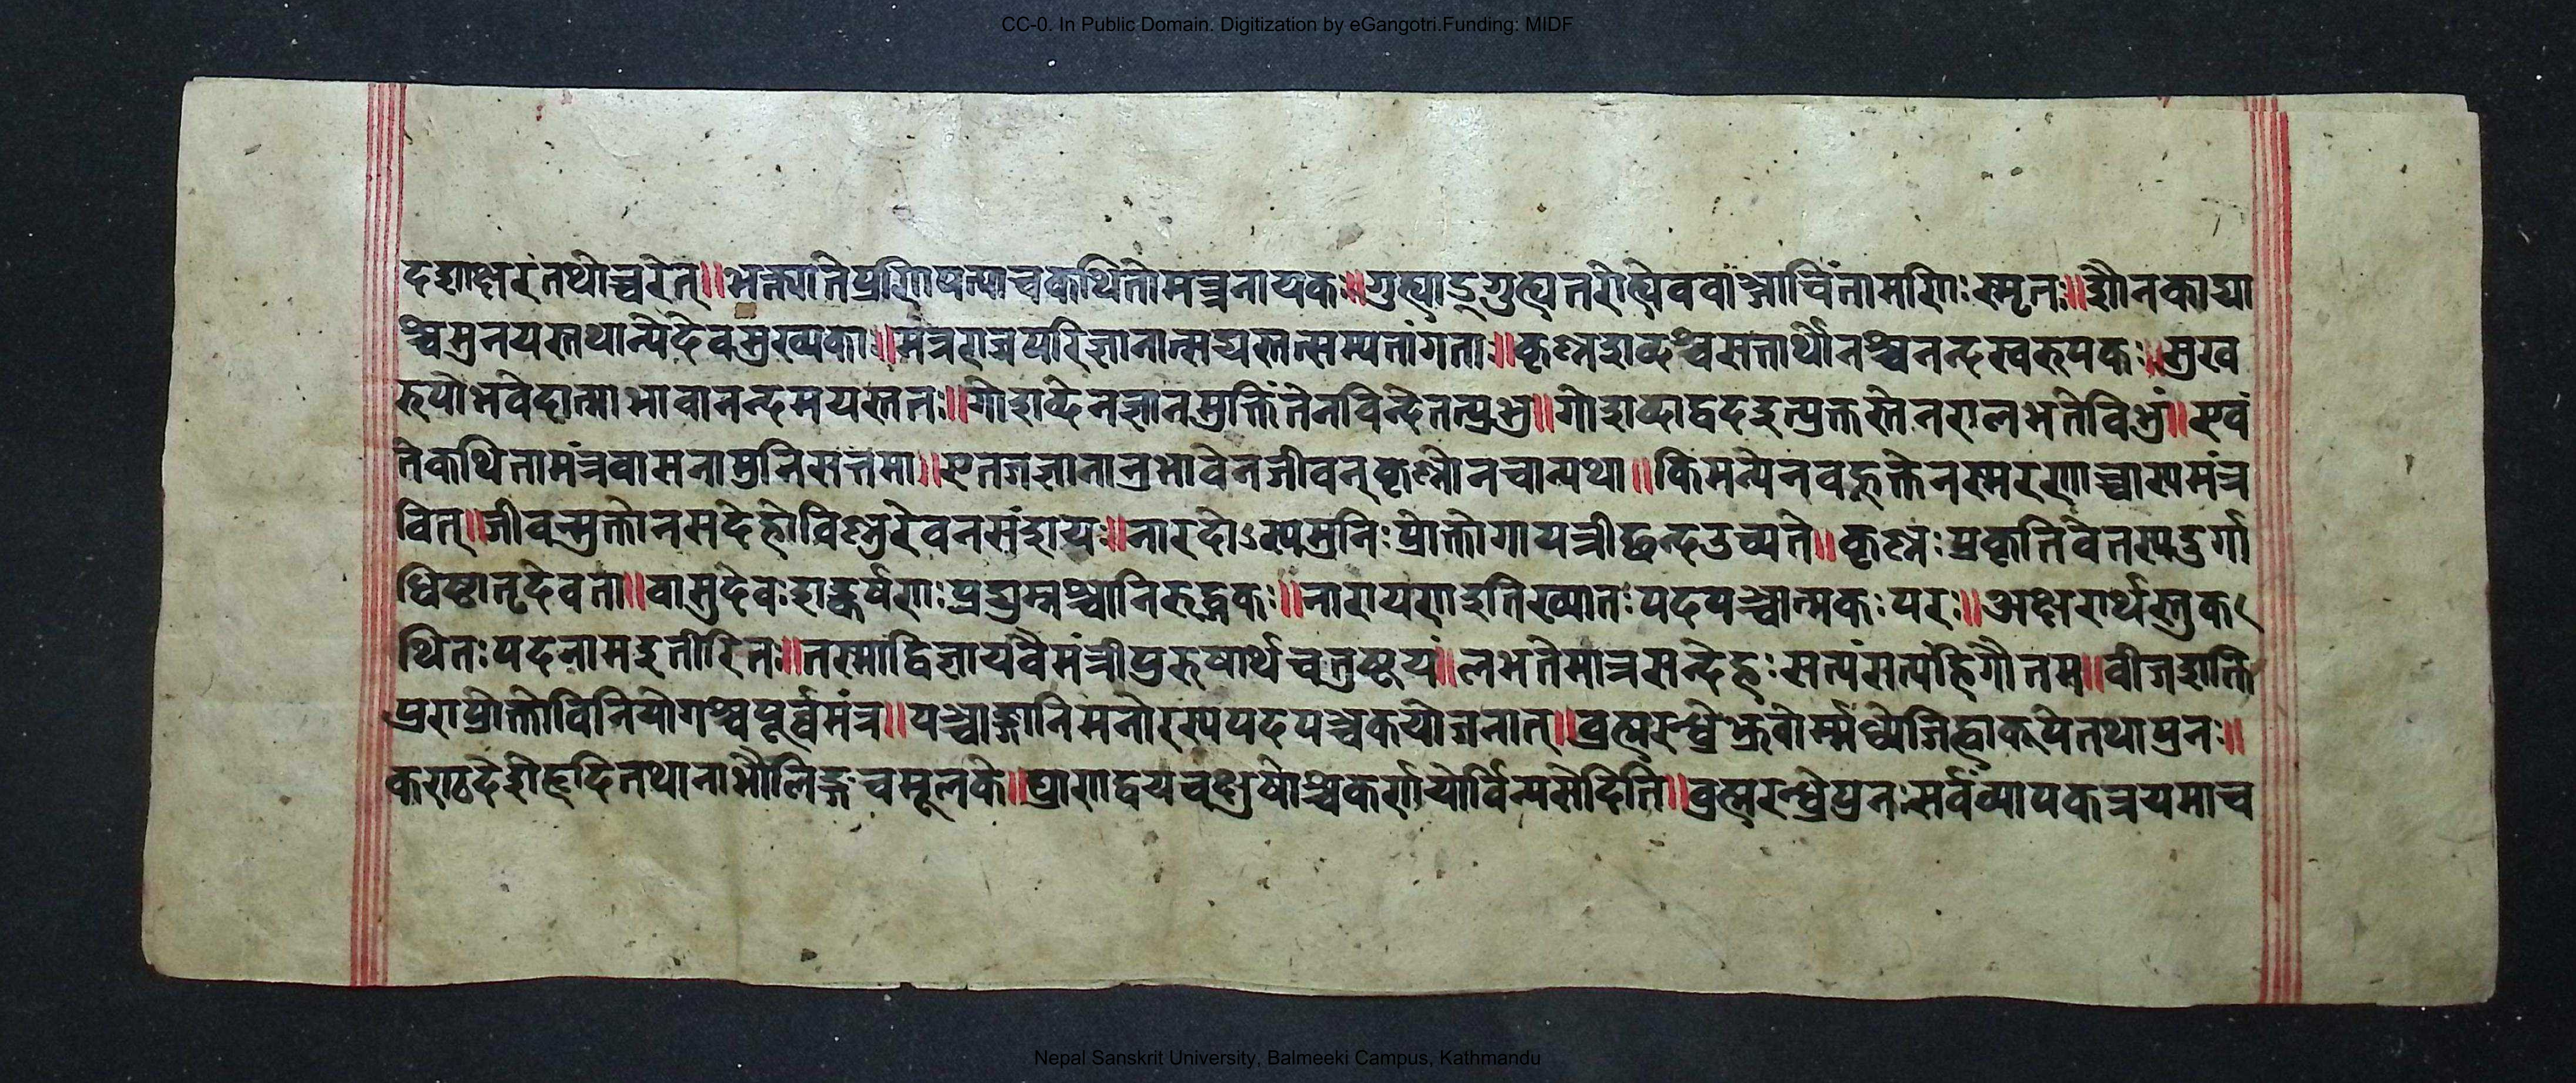 CC-0. In Public Domain. Digitization by eGangotri.Funding: MIDF
दशाक्षरं तथोच्चरेत्॥भक्त्याते प्रणिपत्याच कथितो मन्त्रनायकः॥गुह्याद्गुह्यतरो ह्येव वाञ्छाचिंतामणिः स्मृतः॥शौनकाद्या
श्चमुनयस्तथान्येदेवमुख्यकाः॥मंत्रराजपरिज्ञानात्सद्यस्तत्सम्यतांगताः॥कृष्णशब्दश्चसत्तार्थोनश्चनन्दस्वरुपकः॥सुख
रुपोभवेदात्माभावानन्दमयस्ततः॥गोशब्देनज्ञानमुक्तिंतेनविन्देतत्प्रभु॥गोशब्दाद्वदइत्युक्तस्तेनरालभतेविभुं॥एवं
तेकथितामंत्रवासनामुनिसत्तमा॥एतगज्ञानानुभावेनजीवन्कृष्णोनचान्यथा॥किमन्येनवहूक्तेनस्मरणाच्चास्यमंत्र
वित्॥जीवन्मुक्तोनसदेहोविष्णुरेवनसंशयः॥नारदोऽस्यमुनिःप्रोक्तोगायत्रीछन्दउच्यते॥कृष्णःप्रकृतिवेतस्यदुर्गा
धिष्ठातृदेवता॥वासुदेवःशङ्कर्षणःप्रद्युम्नश्चानिरुद्धकः॥नारायणइतिख्यातःपदपञ्चात्मकःपरः॥अक्षरार्थस्तुक
थितःपदनामइतीरितः॥तस्माद्विज्ञायवैमंत्रीपुरुषार्थचतुष्टयं॥लभतेमात्रसन्देहःसत्यंसत्यंहिगौतम॥वीजशक्ति
पुराप्रोक्तोविनियोगश्चपूर्व्वमंत्र॥पञ्चाङ्गानिमनोरस्यपदपञ्चकयोजनात्॥व्रह्मरन्ध्रेभ्रुवोर्म्मध्येजिह्वाकूपेतथापुनः॥
कण्ठदेशेहृदितथानाभौलिङ्गचमूलके॥घ्राणद्वयचक्षुषोश्चकर्णयोर्विन्यसेदिति॥व्रह्मरन्ध्रेपुनःसर्वंव्यापकत्रयमाच
Nepal Sanskrit University, Balmeeki Campus, Kathmandu